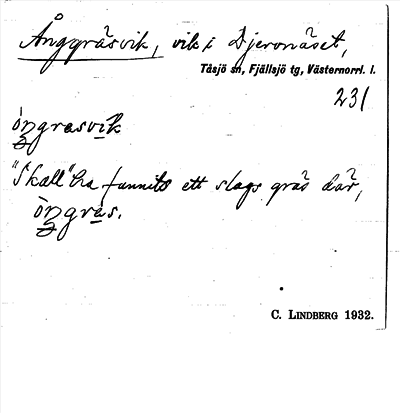 Ånggräsvik, vik i Djeronäset,
Tåsjö sn, Fjällsjö tg, Västernorrl. l.
231
òngrasvik
"Skall" ha funnits ett slags gräs där,
òngras.
C. LINDBERG 1932.